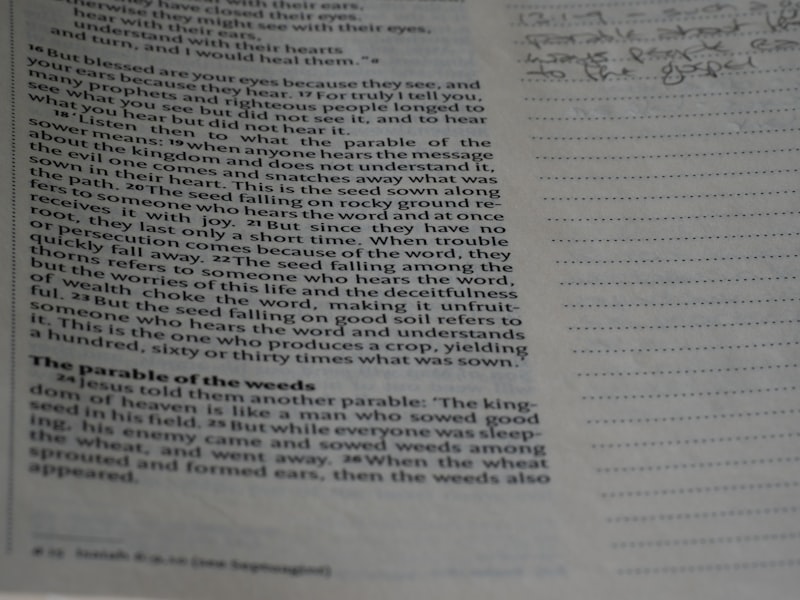 they have closed their eyes.
otherwise they might see with their eyes,
hear with their ears,
understand with their hearts
and turn, and I would heal them.”a
16 But blessed are your eyes because they see, and
your ears because they hear. 17 For truly I tell you,
many prophets and righteous people longed to
see what you see but did not see it, and to hear
what you hear but did not hear it.
18 ‘Listen then to what the parable of the
sower means: 19 when anyone hears the message
about the kingdom and does not understand it,
the evil one comes and snatches away what was
sown in their heart. This is the seed sown along
the path. 20 The seed falling on rocky ground re-
fers to someone who hears the word and at once
receives it with joy. 21 But since they have no
root, they last only a short time. When trouble
or persecution comes because of the word, they
quickly fall away. 22 The seed falling among the
thorns refers to someone who hears the word,
but the worries of this life and the deceitfulness
of wealth choke the word, making it unfruit-
ful. 23 But the seed falling on good soil refers to
someone who hears the word and understands
it. This is the one who produces a crop, yielding
a hundred, sixty or thirty times what was sown.’
The parable of the weeds
24 Jesus told them another parable: ‘The king-
dom of heaven is like a man who sowed good
seed in his field. 25 But while everyone was sleep-
ing, his enemy came and sowed weeds among
the wheat, and went away. 26 When the wheat
sprouted and formed ears, then the weeds also
appeared.
Isaiah (see Septuagint)
parable about
ways people
to the gospel